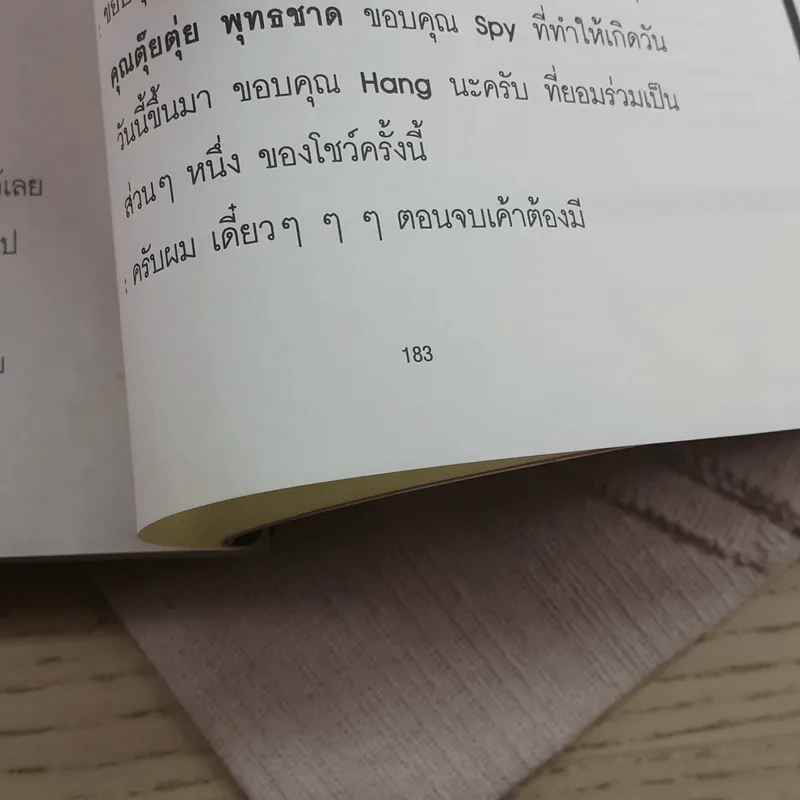 คุณตุ๊ยตุ่ย พุทธชาด ขอบคุณ Spy ที่ทำให้เกิดวัน
วันนี้ขึ้นมา ขอบคุณ Hang นะครับ ที่ยอมร่วมเป็น
ส่วนๆ หนึ่ง ของโชว์ครั้งนี้
: ครับผม เดี๋ยวๆ ๆ ๆ ตอนจบเค้าต้องมี
183